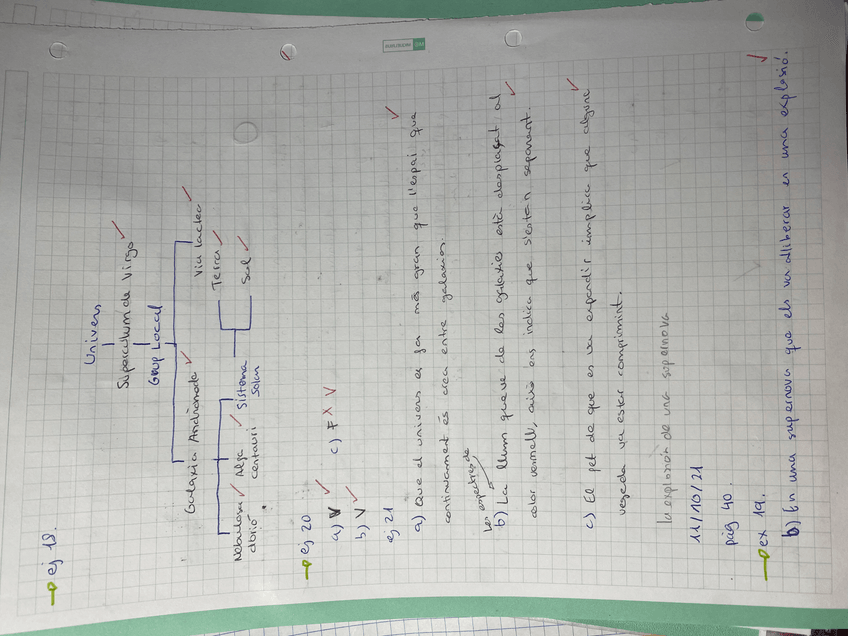 → ej 18.
Univers
Supercúlum de Virgo
Grup Local
Galaxia Andromeda
Via lactea
Nebulosa d'orió
Alfa centauri
Sistema solar
Terra
Sol
→ ej 20
a) V
b) V
c) F X V
ej 21
a) Que el univers es fa més gran que l'espai que
continuament és crea entre galaxies.
Les espectres de
b) La llum que ve de les galaxies està desplaçat al
color vermell, això ens indica que s'estan separant.
c) El fet de que es va expandir implica que alguna
vegada va estar comprimint.
la explosión de una supernova
11/10/21
pàg 40.
→ ex 19.
b) En una supernova que els va alliberar en una explosió.